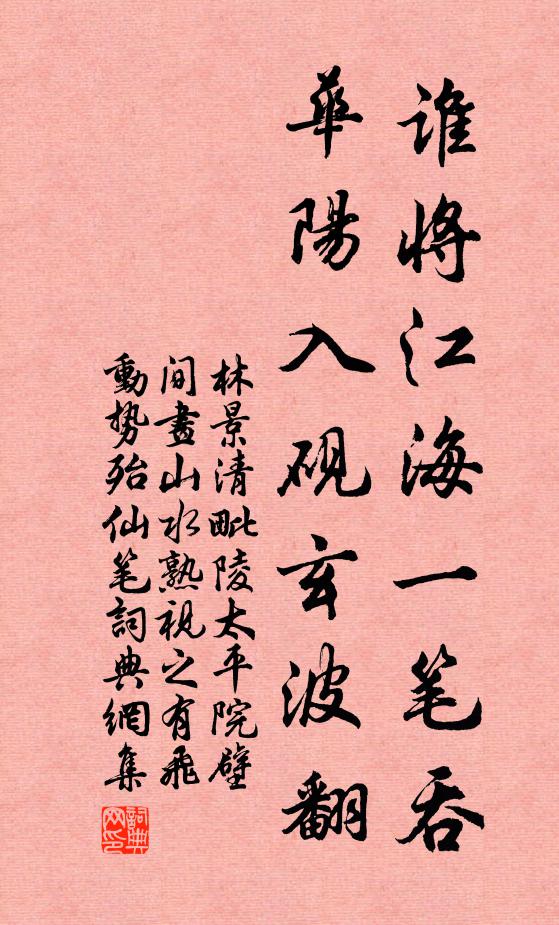 谁將江海一笔吞
華陽入砚玄波翻
林景清毗陵太平院壁
间畫山水熟視之有飛
動势殆仙笔詞典網集
詞典
网印